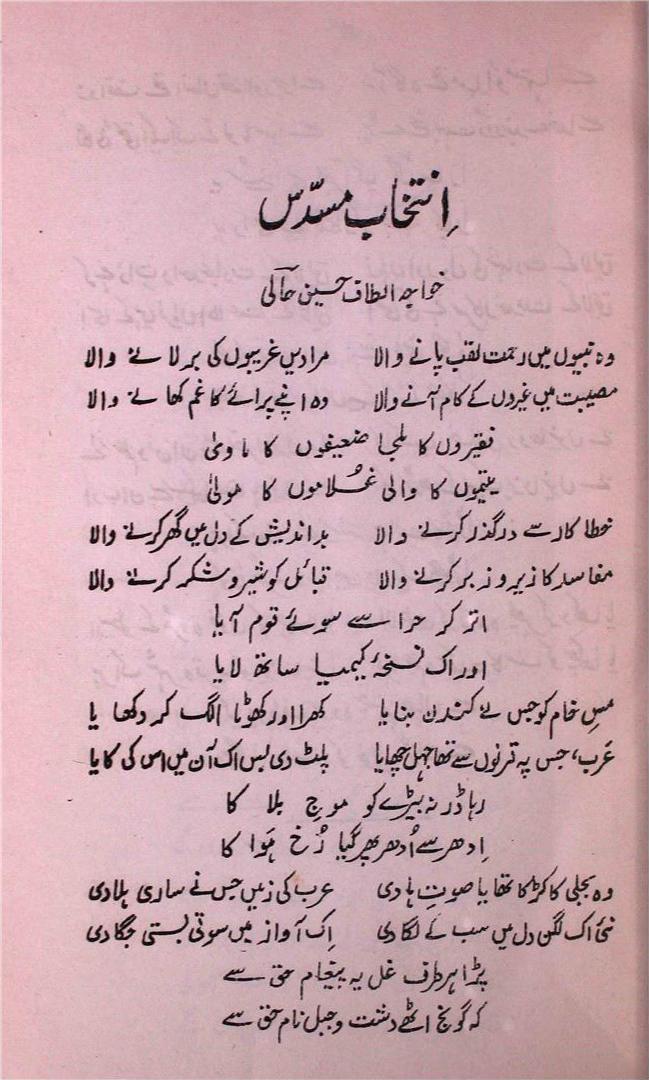 اِنتخابِ مسدّس
خواجہ الطاف حسین حالؔی
وہ نبیوں میں رحمت لقب پانے والا مرادیں غریبوں کی بر لانے والا
مصیبت میں غیروں کے کام آنے والا وہ اپنے پرائے کا غم کھانے والا
فقیروں کا ملجا ضعیفوں کا ماویٰ
یتیموں کا والی غُلاموں کا مولیٰ
خطا کار سے درگذر کرنے والا بد اندیش کے دل میں گھر کرنے والا
مفاسد کا زیر و زبر کرنے والا قبائل کو شیر و شکر کرنے والا
اتر کر حرا سے سوئے قوم آیا
اور اک نسخۂ کیمیا ساتھ لایا
مسِ خام کو جس نے کندن بنایا کھرا اور کھوٹا الگ کر دکھایا
عَرب، جس پہ قرنوں سے تھا جہل چھایا پلٹ دی بس اک آن میں اس کی کایا
رہا ڈر نہ بیڑے کو موجِ بلا کا
اِدھر سے اُدھر پھر گیا رُخ ہَوا کا
وہ بجلی کا کڑکا تھا یا صوتِ ہادی عرب کی زمیں جس نے ساری ہلا دی
نئی اک لگن دل میں سب کے لگا دی اِک آواز میں سوتی بستی جگا دی
پڑا ہر طرف غل یہ پیغامِ حق سے
کہ گونج اٹھے دشت و جبل نامِ حق سے